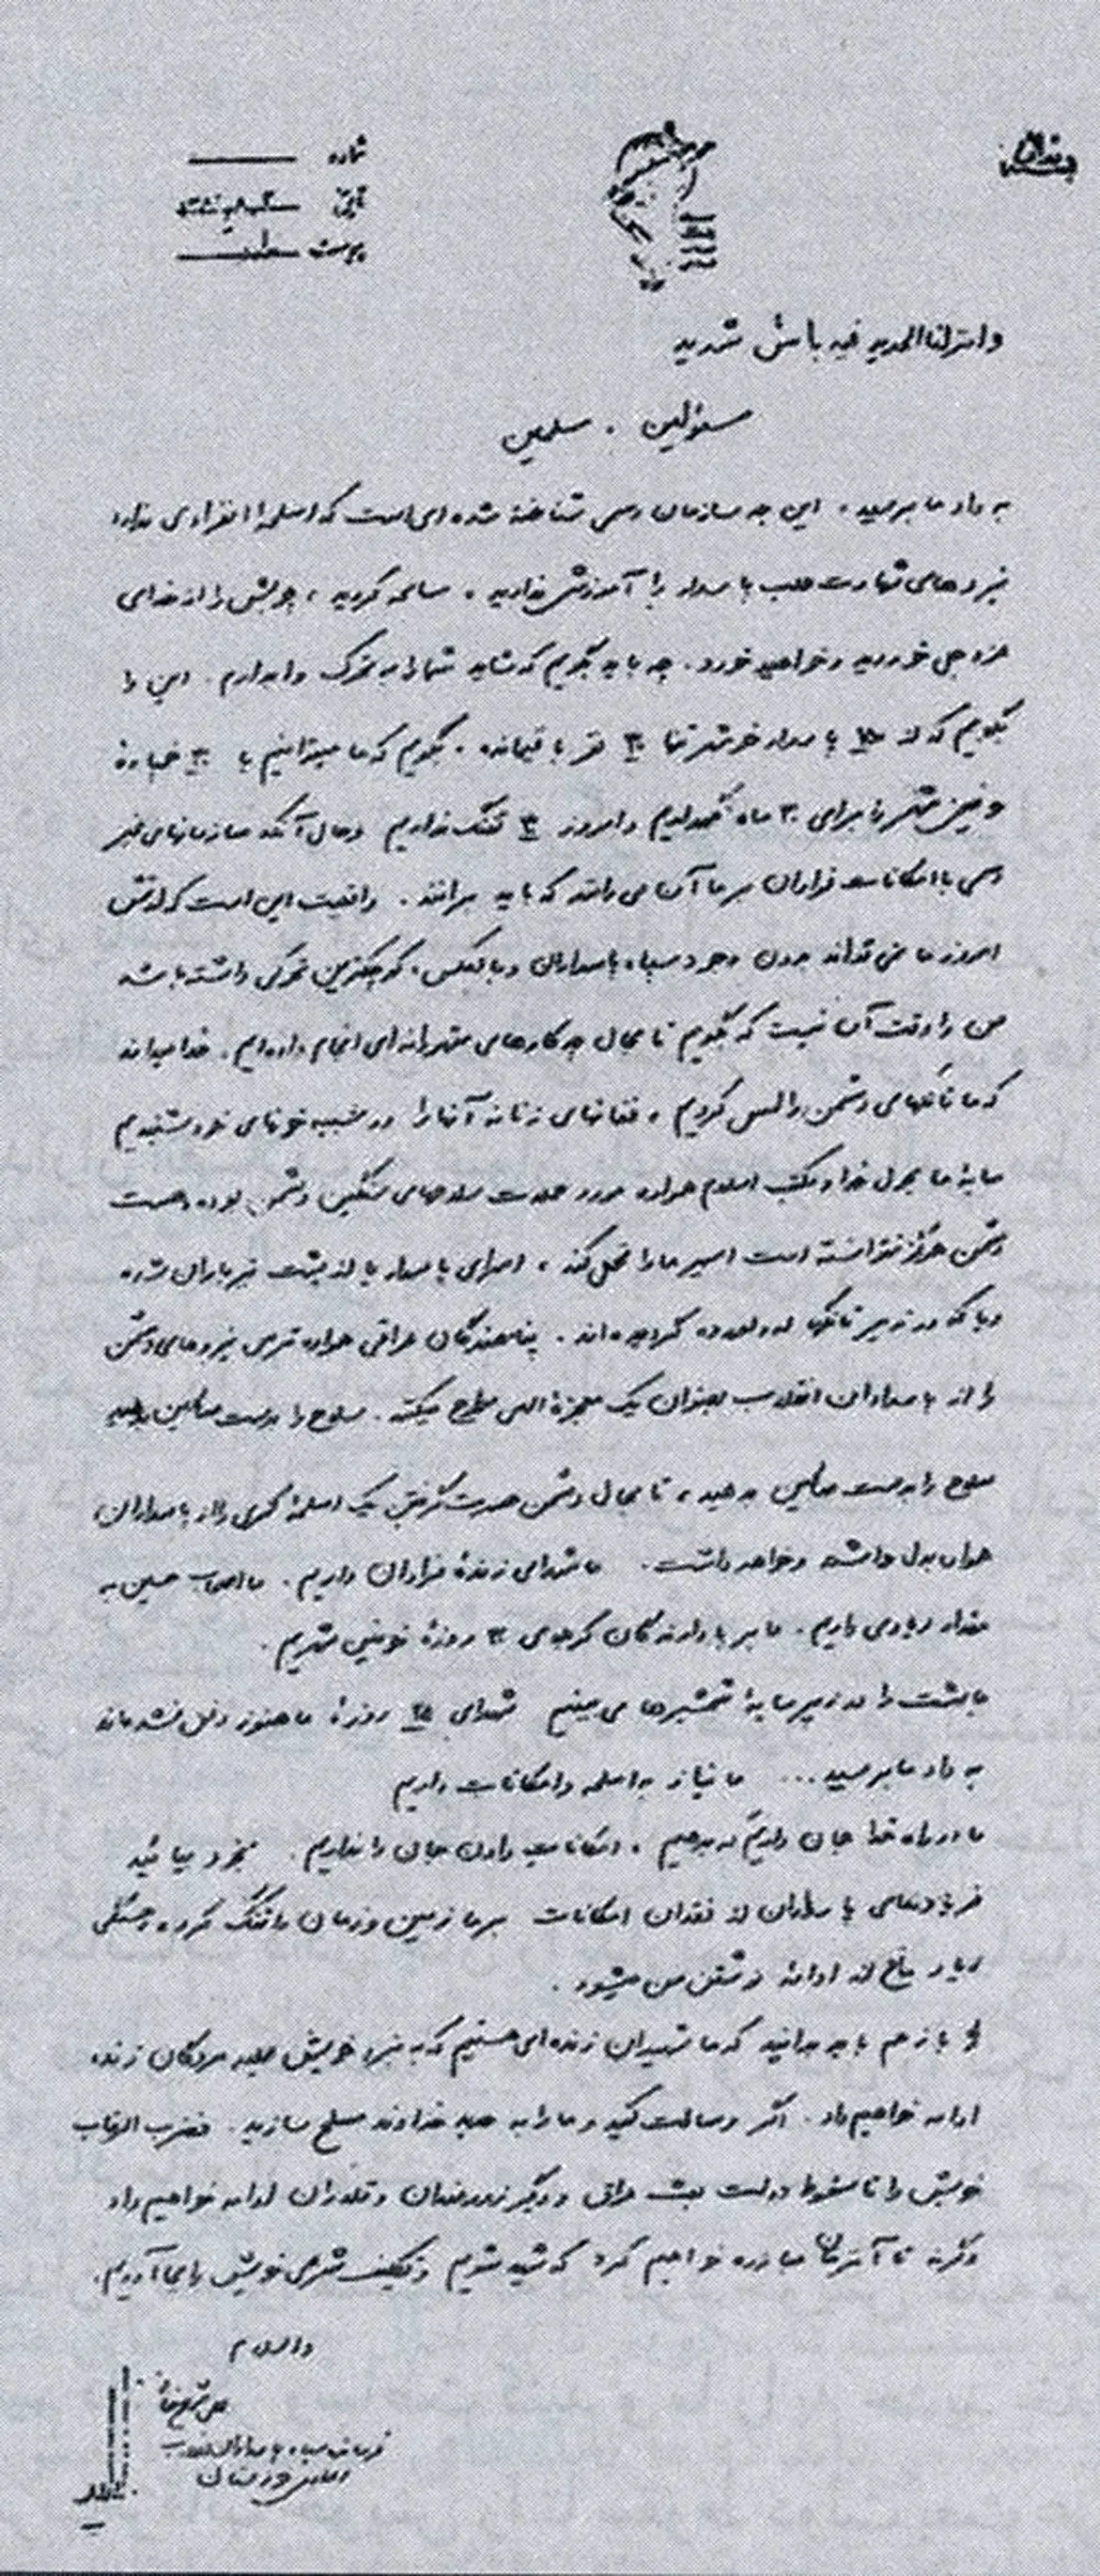 شماره
تاریخ
پیوست
وانزلنا الحدید فیه باس شدید
مسئولین . مسلمین
به داد ما برسید ، این چه سازمان رسمی شناخته شده ای است که اسلحه انفرادی ندارد
نیروهای شهادت طلب پاسدار را آموزش ندادید ، مسامحه کردید ، چوبش را از خدای
عزوجل خوردید و خواهید خورد . چه باید بگویم که شاید شما را به تحرک وادارم . این را
بگویم که از ۱۵۰ پاسدار خرمشهر تنها ۳۰ نفر باقیمانده . بگویم که ما میتوانیم با ۳۰ خمپاره
خونین شهر را برای ۳۰ ماه نگهداریم و امروز ۳۰ تفنگ نداریم و حال آنکه سازمانهای غیر
رسمی با امکانات فراوان بر ما آن می رانند که باید برانند . واقعیت این است که ارتش
امروز ما نمی تواند بدون وجود سپاه پاسداران و بالعکس ، کوچکترین تحرکی داشته باشد
من را وقت آن نیست که بگویم تا بحال چه کارهای متهورانه ای انجام داده ایم . خدا میداند
که ما تانکهای دشمن را لمس کردیم ، فغانهای زنانه آنها را در شبیه خونهای خود شنیدیم
سایه ما بحول خدا و مکتب اسلام همواره مورد حملات سلاحهای سنگین دشمن بوده و هست
دشمن هرگز نتوانسته است اسیر ما را تحمل کند ، اسرای پاسدار یا از پشت تیرباران شده
و یا که در زیر تانکها له و لورده گردیده اند . پناهندگان عراقی همواره ترس نیروهای دشمن
را از پاسداران انقلاب بعنوان یک معجزه الهی مطرح میکنند . سلاح را بدست صالحین بدهید
سلاح را بدست صالحین بدهید ، تا بحال دشمن حسرت گرفتن یک اسلحه کمری را از پاسداران
همواره بدل داشته و خواهد داشت . ما شهدای زنده فراوان داریم . ما اصحاب حسین به
مقدار زیادی داریم . ما بر پا دارندگان کربلای ۳۰ روزه خونین شهریم .
ما بهشت را در زیر سایه شمشیرها می بینیم شهدای ۲۵ روزه ما هنوز دفن نشده اند
به داد ما برسید ... ما نیاز به اسلحه و امکانات داریم
ما در راه خدا جان داریم که بدهیم ، امکانات دادن جان را نداریم . بخود بیائید
فریادهای پاسداران از فقدان امکانات بر ما زمین و زمان را تنگ کرده و خستگی
زیاد مانع از ادامه نوشتن من میشود .
باز هم باید بدانید که ما شهیدان زنده ای هستیم که به نبرد خویش علیه مردگان زنده
ادامه خواهیم داد . اگر رسالت کنید و ما را به حدید خداوند مسلح سازید . فضرب الرقاب
خویش را تا سقوط دولت بعث عراق و دیگر زورمندان و قلدران ادامه خواهیم داد
وگرنه تا آنزمان مبارزه خواهیم کرد که شهید شویم و تکلیف شرعی خویش را بجا آوریم .
والسلام
علی شمخانی
فرمانده سپاه پاسداران انقلاب
اسلامی خوزستان